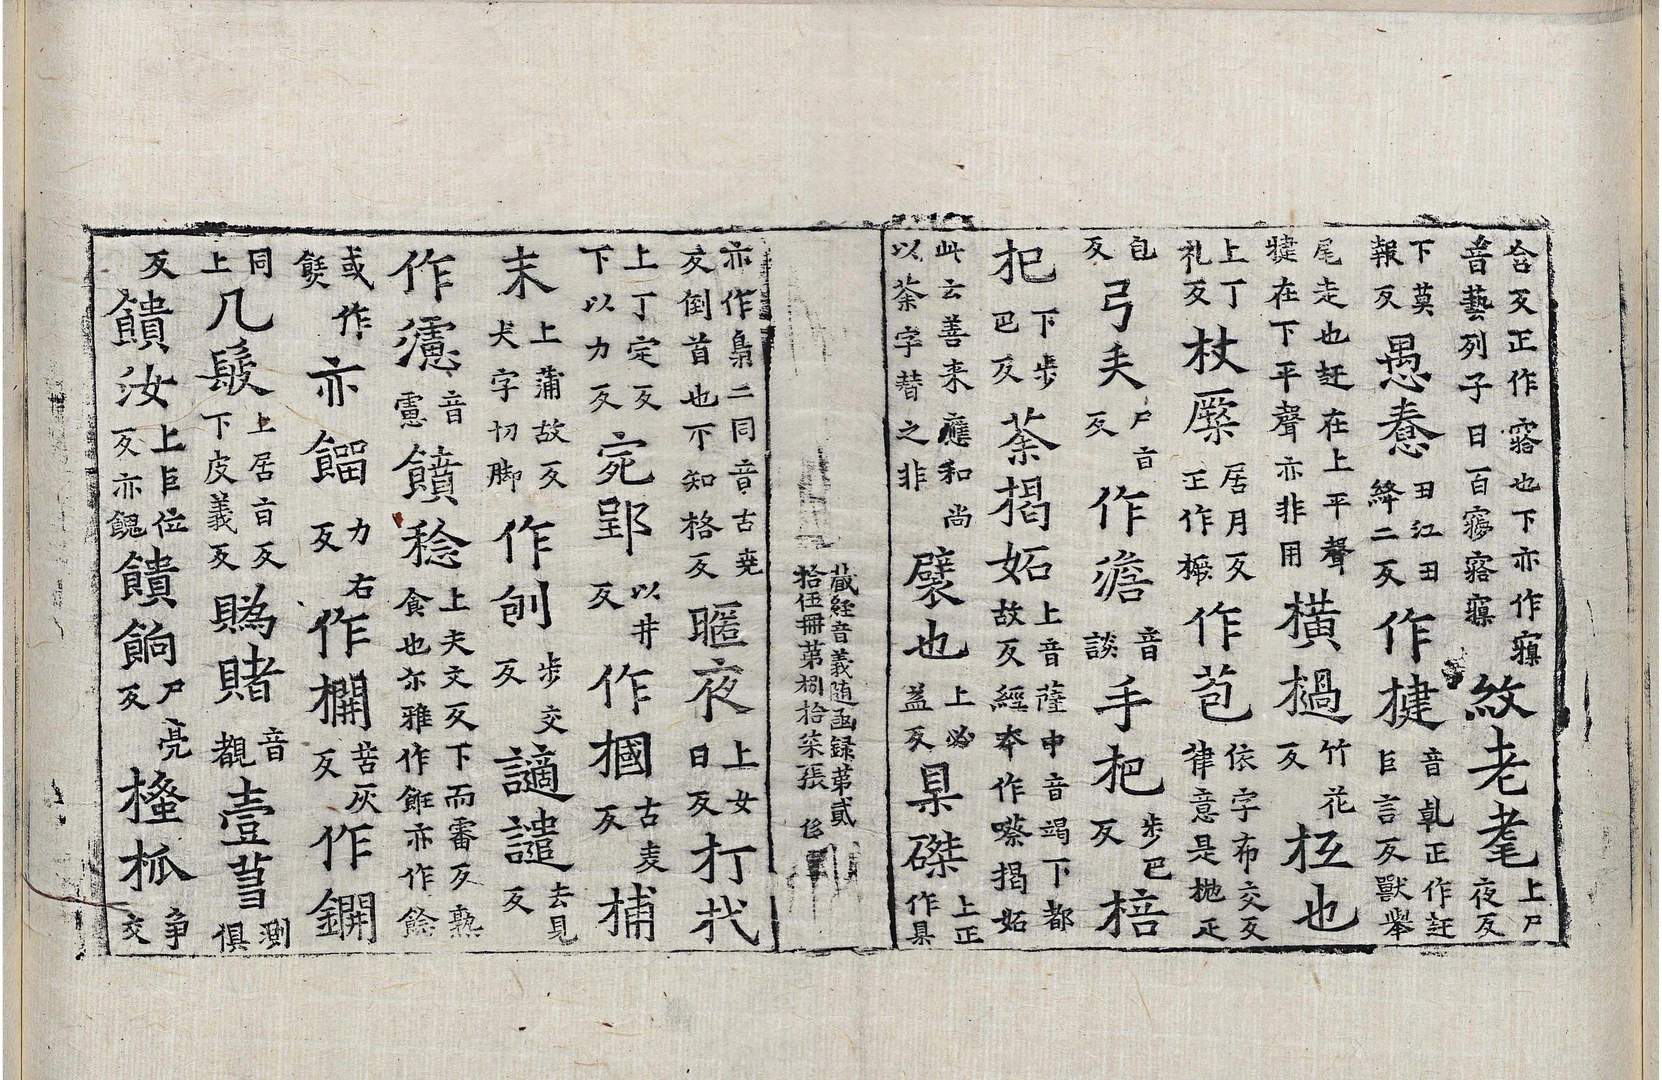 合反正作㝛也下亦作寱
音藝列子曰百㝱㝛寱
紋老耄上尸夜反
下莫報反
愚惷丑江丑絳二反
作揵音乹正作䢂巨言反獸舉
尾走也䢂在上平聲揵在下平聲亦非用
橫檛竹花反
枑也
上丁礼反
杖厥居月反正作橛
作苞依字布交反律意是抛疋
包反
弓夫尸音反
作澹音談
手杷步巴反
棓
杷下步巴反
䓭揭妬上音薩中音竭下都故反經夲作嚓揭妬
此云善来應和尚以䓭字替之非
襞也上必益反
杲磔上正作杲
藏経音義随函録第貳拾伍冊第捌拾柒張
亦作梟二同音古堯反倒首也不知格反
暱夜上女日反
朾𣏾
上丁定反下以力反
宛郢以井反
作摑古麦反
捕末上蒲故反犬字切脚
作刨步交反
讁譴去見反
作㵢音慮
饙稔上夫文反下而審反熟食也尒雅作䬳亦作餘
或作䭈
亦餾力右反
作櫊苦灰反
作鐦
同上
几髲上居旨反下皮義反
賜賭音覩
壹莒測俱反
饋汝上巨位反亦餽
饋餉尸亮反
橦㧓爭交